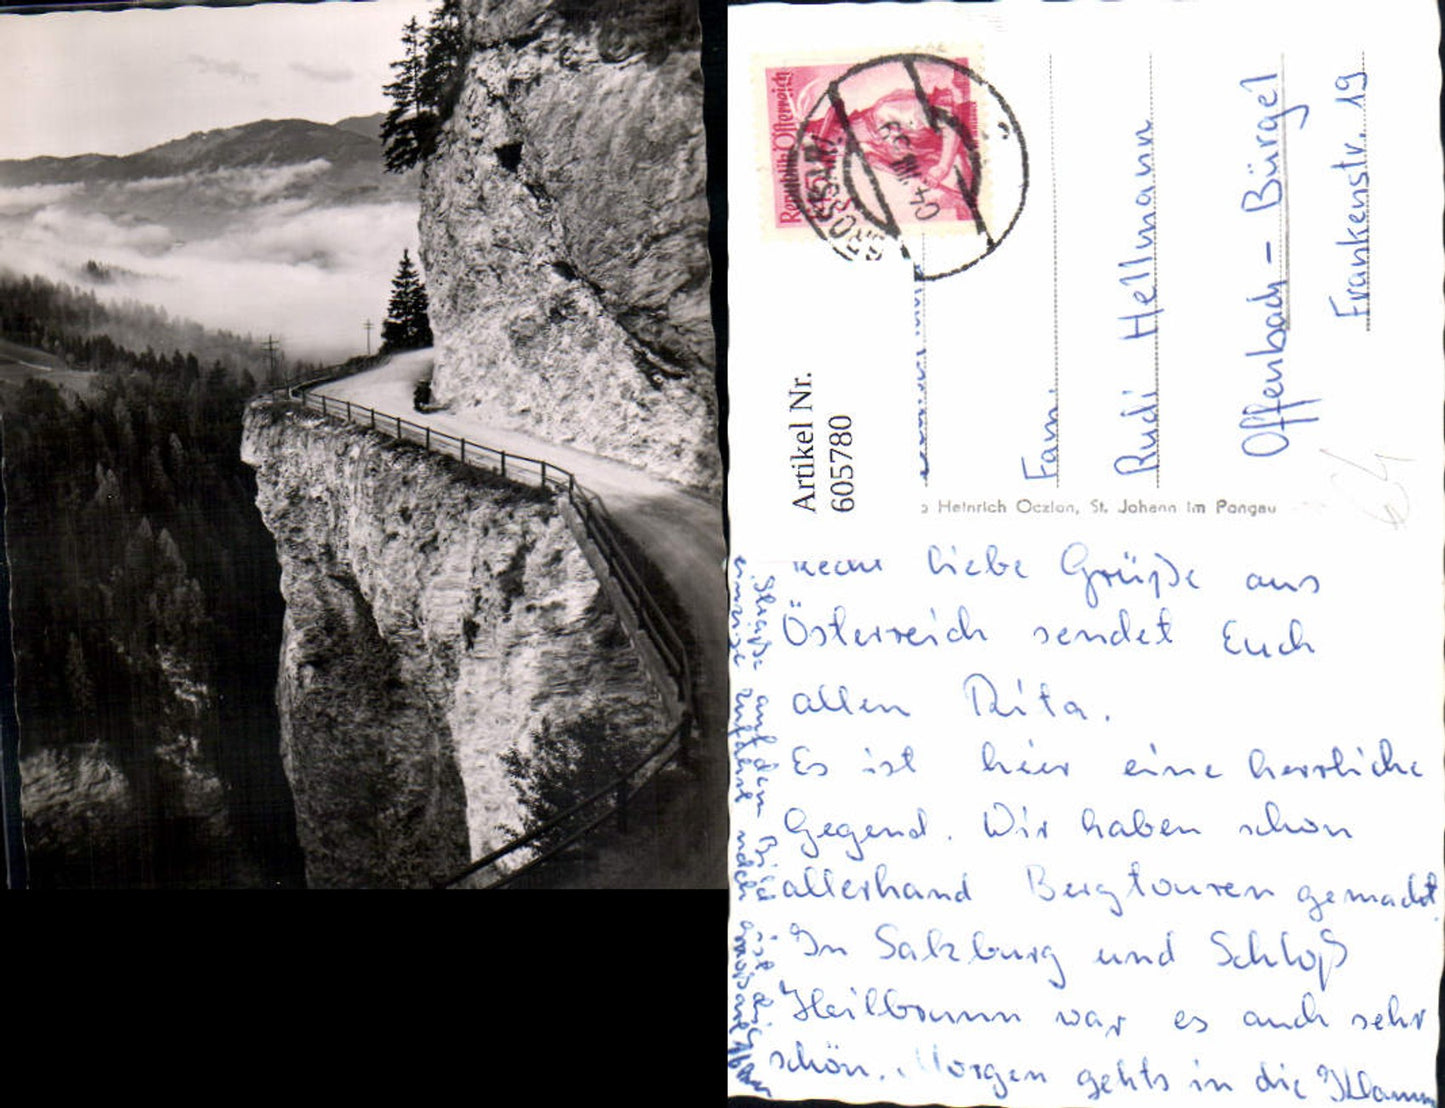 Republik Österreich
GROSSARL
Artikel Nr.
605780
Fam.
Rudi Hellmann
Offenbach - Bürgel
Frankenstr. 19
Heinrich Oczlon, St. Johann im Pongau
Recht liebe Grüße aus
Österreich sendet Euch
allen Rita.
Es ist hier eine herrliche
Gegend. Wir haben schon
allerhand Bergtouren gemacht.
In Salzburg und Schloß
Heilbrunn war es auch sehr
schön. Morgen gehts in die Klamm
Straße auf dem Bild ist die
einzige Zufahrt nach Grossarl